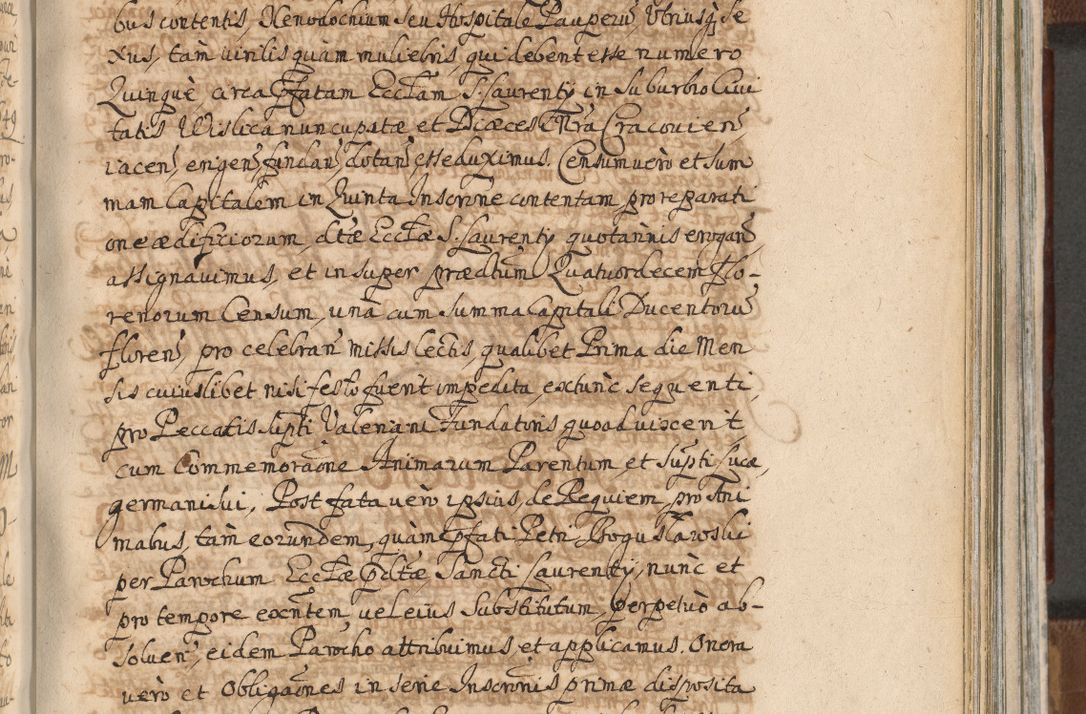 bus contentis, Xenodochium seu Hospitale Pauperū Utriusq̃ se
xus, tàm virilis quàm muliebris, qui debent esse numero
Quinquè, circa Pfatam Eccłam S. Laurentÿ in suburbio Civi
tatis Wislica nuncupatæ et Diæcesis Nrã Cracovien̄
iacen̄, erigen̄, fundan̄, dotan̄, esse duximus. Censum verò et sum
mam Capitalem in Quinta Inscrõne contentam pro reparati
one ædificiorum, dtæ Eccłæ S. Laurentÿ quotannis erogan̄
assignavimus, et in super prædictum Quatuordecem Flo-
renorum Censum, unà cum summa Capitali Ducentorū
floren̄, pro celebran̄ missis lectis, qualibet Prima die Men
sis cuiuslibet nisi festo fuerit impedita, extunc sequenti,
pro Peccatis supti Valeriani Fundatoris quoad vixerit,
cum Commemoraõne Animarum Parentum et supti Lucæ,
germani sui, Post fata verò ipsius, de Requiem, pro Ani
mabus, tàm eorundem, quàm pfati Petri Boguslawski
per Parochum Eccłæ pdtæ Sancti Laurentÿ, nunc et
pro tempore exñtem, vel eius Substitutum, perpetuò ab-
solven̄, eidem Parocho attribuimus, et applicamus. Onera
verò et Obligaõnes in serie Inscrõnis primæ disposita